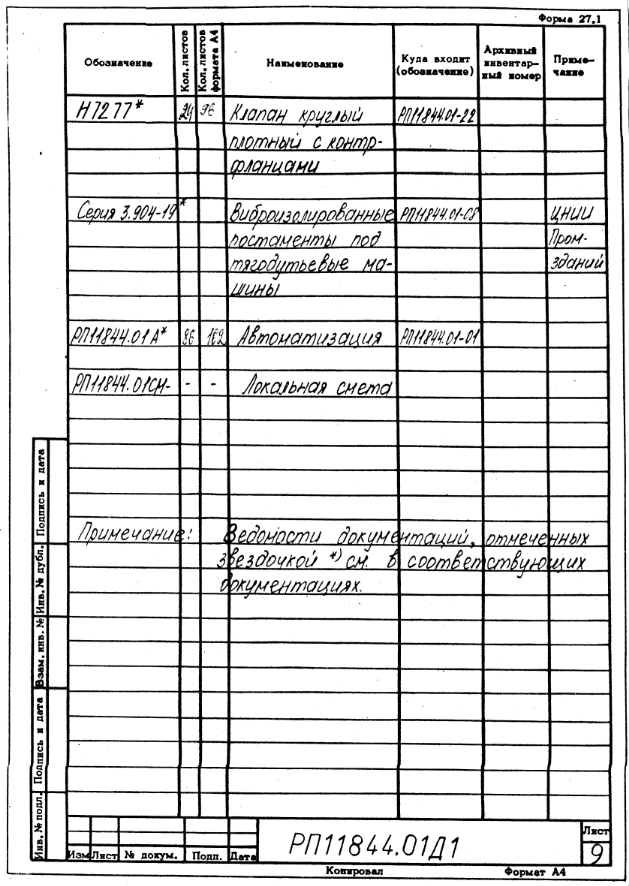 Форма 27.1
Обозначение Кол. листов Кол. листов формата А4 Наименование Куда входит (обозначение) Архивный инвентар-ный номер Приме-чание
Н7277* 24 96 Клапан круглый РП11844.01-22
плотный с контр-
фланцами
Серия 3.904-19* Виброизолированные РП11844.01-08 ЦНИИ
постаменты под Пром-
тягодутьевые ма- зданий
шины
РП11844.01А* 96 162 Автоматизация РП11844.01-01
РП11844.01СМ- - - Локальная смета
Примечание: Ведомости документаций, отмеченных
звездочкой *) см. в соответствующих
документациях.
Инв. № подл. Подпись и дата Взам. инв. № Инв. № дубл. Подпись и дата
РП11844.01Д1
Лист
9
Изм Лист № докум. Подп. Дата
Копировал Формат А4